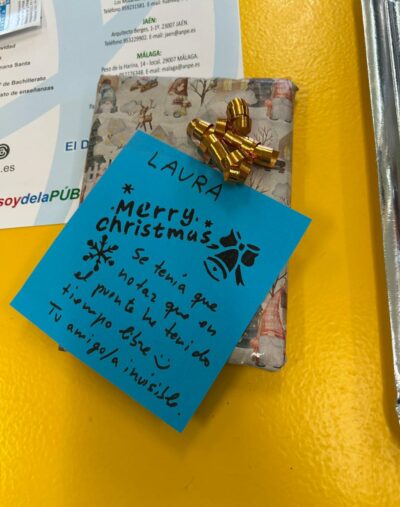 JAÉN:
Arquitecto Berges, 1-1º. 23007 JAÉN.
Teléfono.953229902. E-mail: jaen@anpe.es
MÁLAGA:
Peso de la Harina, 14 - local. 29007 MÁLAGA.
E-mail: malaga@anpe.es
mana Santa
º de Bachillerato
ato de enseñanzas
.es
El D
soydelaPÚB
LAURA
Merry
christmas
Se tenía que
notar que en
el puente he tenido
tiempo libre
Tu amigo/a invisible.